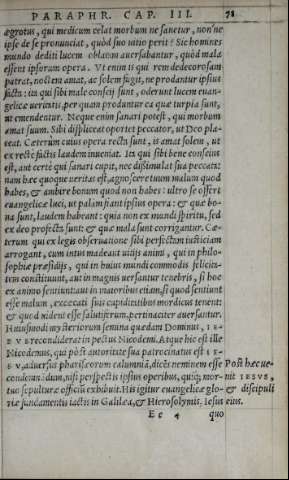 PARAPHR. CAP. III. 78
ægrotus, qui medicum celat morbum ne sanetur, nonne
ipse de se pronunciat, quod suo uitio perit? Sic homines
mundo dediti lucem oblatam auersabantur, quod mala
essent ipsorum opera. Vt enim is qui rem dedecorosam
patrat, noctem amat, ac solem fugit, ne prodantur ipsius
facta: ita qui sibi male conscij sunt, oderunt lucem euan-
gelicæ ueritatis, per quam produntur ea quæ turpia sunt,
ut emendentur. Neque enim sanari potest, qui morbum
amat suum. Sibi displiceat oportet peccator, ut Deo pla-
ceat. Cæterum cuius opera recta sunt, is amat solem, ut
ex recte factis laudem inueniat. Ita qui sibi bene conscius
est, aut certe qui sanari cupit, nec dissimulat sua peccata:
nam hæc quoque ueritas est, agnoscere tuum malum quod
habes, & ambire bonum quod non habes: ultro se offert
euangelicæ luci, ut palam fiant ipsius opera: & quæ bo-
na sunt, laudem habeant: quia non ex mundi spiritu, sed
ex deo profecta sunt: & quæ mala sunt corrigantur. Cæ-
terum qui ex legis obseruatione sibi perfectam iusticiam
arrogant, cum intus madeant uitijs animi, qui in philo-
sophiæ præsidijs, qui in huius mundi commodis felicita-
tem constituunt, aut in magnis uersantur tenebris, si hoc
ex animo sentiunt: aut in maioribus etiam, si quod sentiunt
esse malum, excæcati suis cupiditatibus mordicus tenent:
& quod uident esse salutiferum, pertinaciter auersantur.
Huiusmodi mysteriorum semina quædam Dominus, IE-
SVS recondiderat in pectus Nicodemi. Atque hic est ille
Nicodemus, qui post autoritate sua patrocinatus est IE-
SV, aduersus pharisæorum calumniam, dicens neminem esse
condemnandum, nisi perspectis ipsius operibus, quique mor-
tuo sepulturæ officium exhibuit. His igitur euangelicæ glo-
riæ fundamentis iactis in Galilæa, & Hierosolymis, Iesus
Ee 4 quo
Post hæc ue-
nit IESVS,
& discipuli
eius.